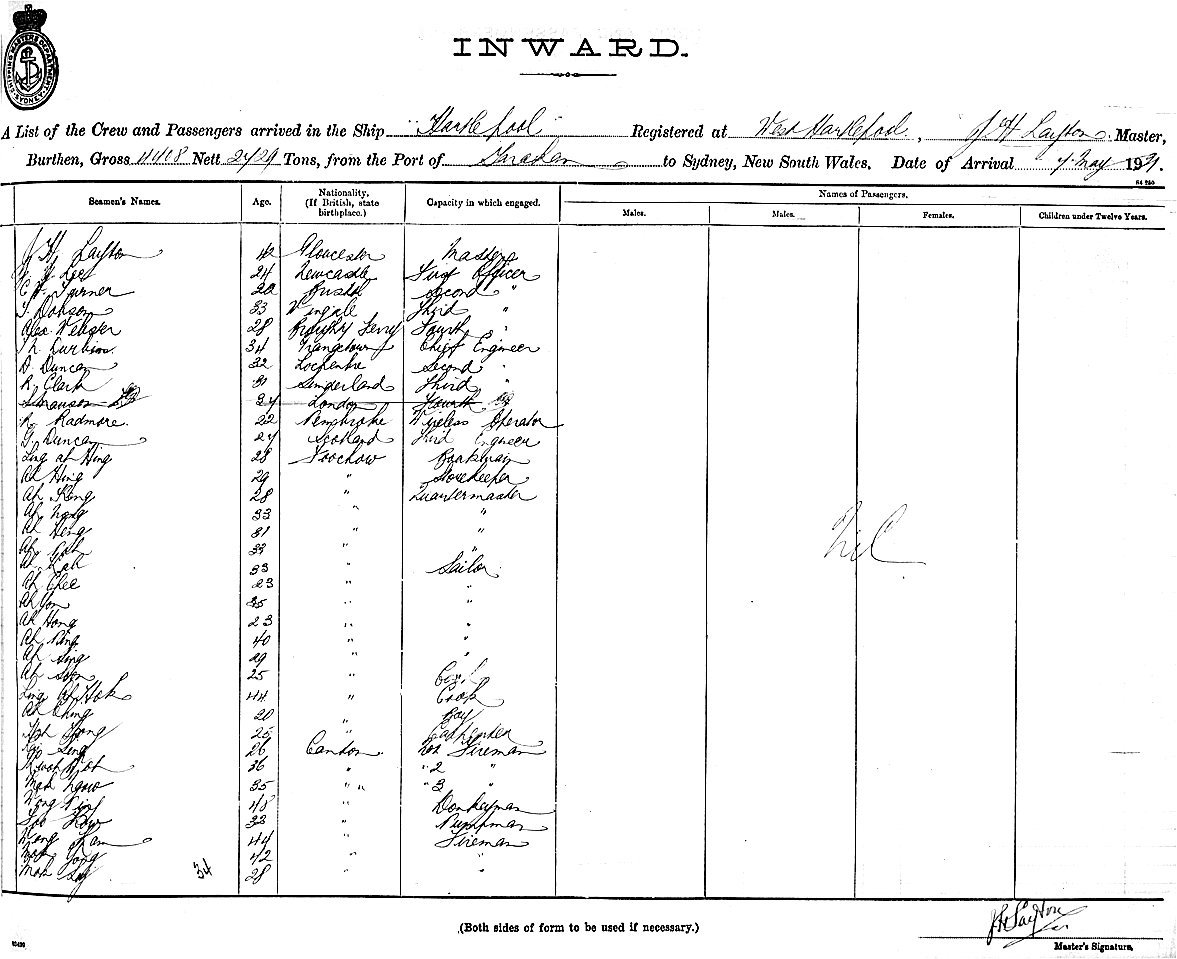 SHIPPING MASTERS DEPARTMENT. SYDNEY
INWARD.
A List of the Crew and Passengers arrived in the Ship "Hartlepool" Registered at West Hartlepool, J H Layton Master,
Burthen, Gross 4418 Nett 2429 Tons, from the Port of Tarakan to Sydney, New South Wales. Date of Arrival 7 May 1921.
S4 250
Seamen's Names. Age. Nationality. (If British, state birthplace.) Capacity in which engaged. Names of Passengers.
Males. Males. Females. Children under Twelve Years.
J H Layton 42 Gloucester Master
Lee 24 Newcastle First Officer
C H Turner Bristol Second "
T. Dobson 33 Third "
Alex Webster 28 Broughty Ferry Fourth "
34 Grangetown Chief Engineer
D. Duncan 32 Second "
R. Clark 31 Sunderland Third "
London Fourth
R. Radmore. 22 Pembroke Wireless Operator
G. Duncan 27 Scotland Third Engineer
Ling ah Hing 28 Foochow
Ah Hing 29 " Storekeeper
Ah Kong 28 " Quartermaster
33 " "
Ah Heng 31 " "
" "
33 " Sailor
Ah Chee 23 " "
Ah Von 35 " "
Ah Hong 23 " "
Ah Ping 40 " "
Ah Sing 29 " "
Ah 25 "
Ling Ah Hok 44 " Cook
Ah Ching 20 " Boy
25 " Carpenter
Ling 26 Canton No1 Fireman
36 " " 2 "
Moh 35 " " " 3 "
Wong 48 " Donkeyman
33 " Pumpman
Wong 44 " Fireman
42 " "
Moh 28 " "
34
Nil
(Both sides of form to be used if necessary.)
JH Layton
Master's Signature.